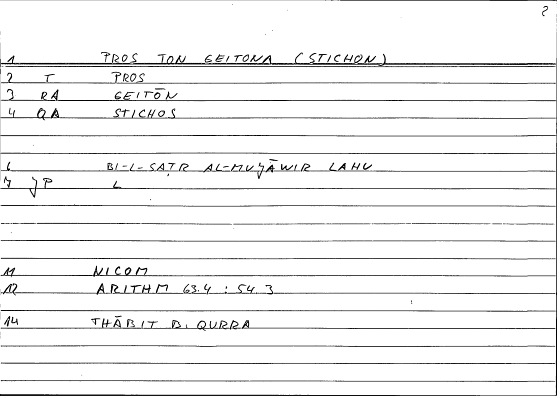 2
1 PROS TON GEITONA (STICHON)
2 T PROS
3 RA GEITŌN
4 QA STICHOS
6 BI-L-SAṬR AL-MUJĀWIR LAHU
7 JP L
11 NICOM
12 ARITHM 63.4 : 54.3
14 THĀBIT B. QURRA